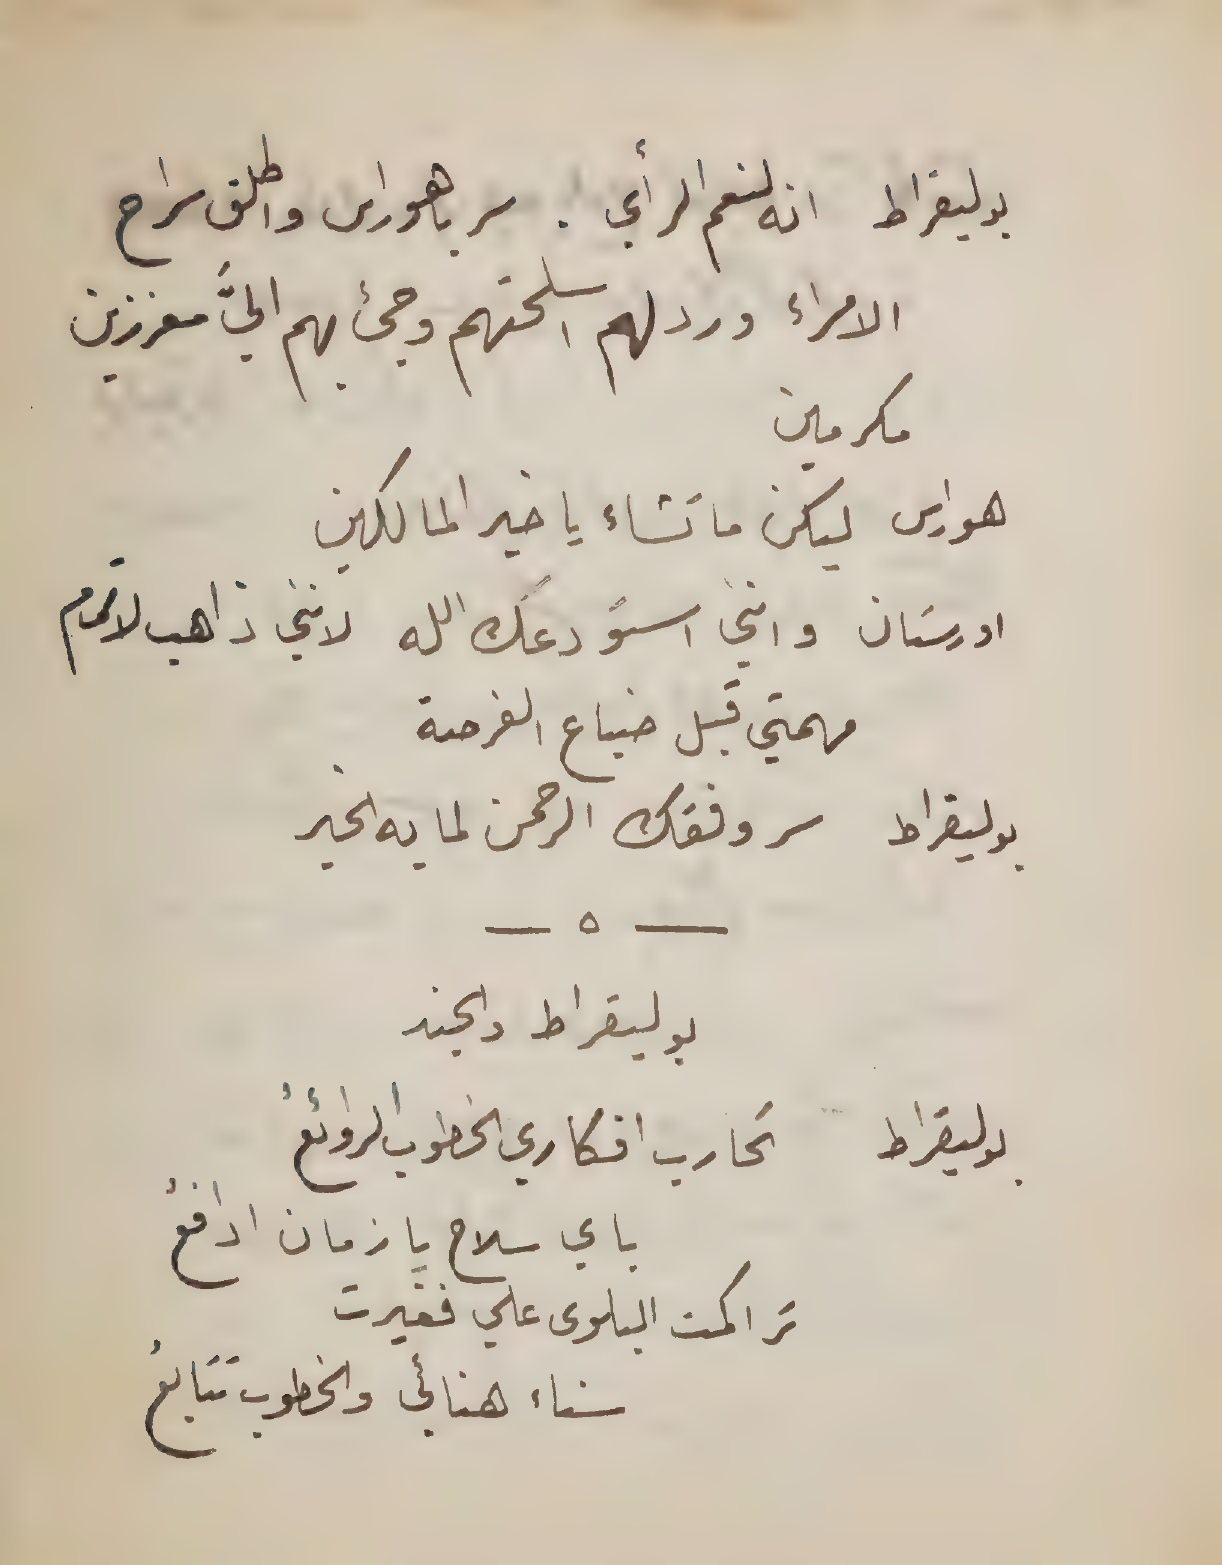 بوليقراط انه لنعم الرأي . سر ياهوراس واطلق سراح
الامراء ورد لهم اسلحتهم وجئ بهم اليَّ معززين
مكرمين
هوراس ليكن ما تشاء يا خير المالكين
اورستان وانني استودعك الله لانني ذاهب لاتمام
مهمتي قبل ضياع الفرصة
بوليقراط سر وفقك الرحمن لما به الخير
— ٥ —
بوليقراط والجند
بوليقراط تحارب افكاري الخطوب الروائعُ
باي سلاح يا زمان ادافعُ
تراكمت البلوى علي فغيرت
سناء هنائي والخطوب تتابعُ